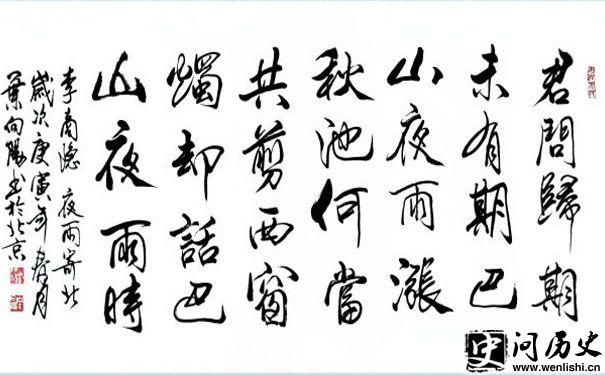 君問歸期
未有期巴
山夜雨漲
秋池何當
共剪西窗
燭却話巴
山夜雨時
李商隐 夜雨寄北
歲次庚寅年春月
葉向陽书於北京
史 问历史
www.wenlishi.cn